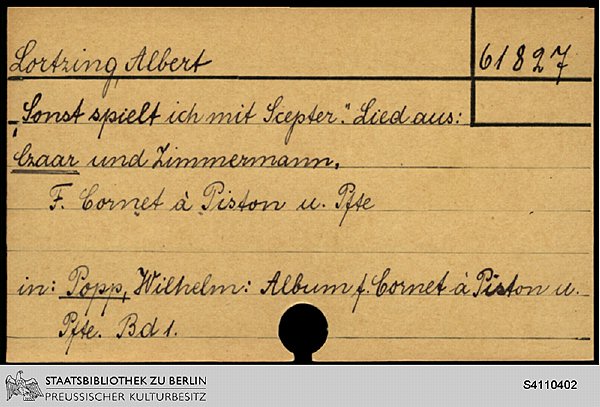 Lortzing, Albert
61827
„Sonst spielt ich mit Scepter." Lied aus:
Czaar und Zimmermann.
F. Cornet à Piston u. Pfte
in: Popp, Wilhelm: Album f. Cornet à Piston u.
Pfte. Bd 1.
STAATSBIBLIOTHEK ZU BERLIN
PREUSSISCHER KULTURBESITZ
S4110402